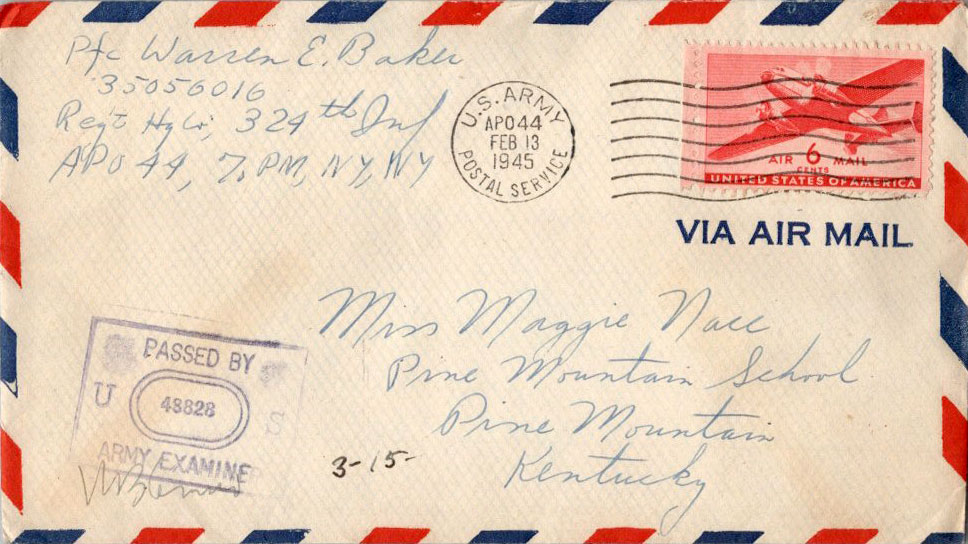 Pfc Warren E. Baker
35056016
Reg't Hq Co, 324th Inf
APO 44, % PM, NY, NY
U.S. ARMY
APO 44
FEB 13
1945
POSTAL SERVICE
AIR 6 MAIL
CENTS
UNITED STATES OF AMERICA
VIA AIR MAIL
Miss Maggie Nace
Pine Mountain School
Pine Mountain
Kentucky
PASSED BY
U 48828 S
ARMY EXAMINE
3-15-